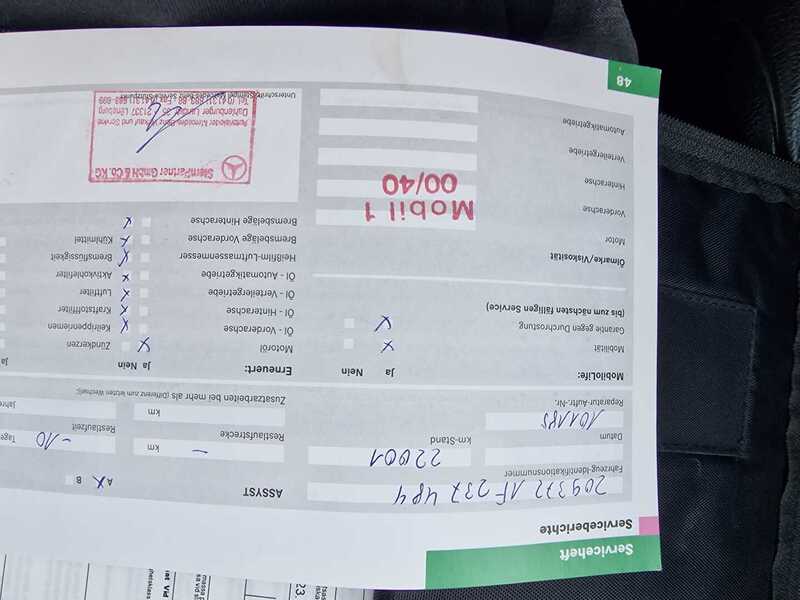 Serviceheft
Serviceberichte
209372 1F 237484
Fahrzeug-Identifikationsnummer
ASSYST
A X B
22001
Datum
km-Stand
Restlaufstrecke
–
km
Restlaufzeit
-10
Tage
101185
Reparatur-Auftr.-Nr.
Zusatzarbeiten bei mehr als (Differenz zum letzten Wechsel):
km
Jahre
MobiloLife:
Ja
Nein
Mobilität
X
Garantie gegen Durchrostung
X
(bis zum nächsten fälligen Service)
Erneuert:
Ja
Nein
Ja
Motoröl
X
Zündkerzen
Öl - Vorderachse
X
Keilrippenriemen
Öl - Hinterachse
X
Kraftstofffilter
Öl - Verteilergetriebe
X
Luftfilter
Öl - Automatikgetriebe
X
Aktivkohlefilter
Heißfilm-Luftmassenmesser
X
Bremsflüssigkeit
Bremsbeläge Vorderachse
X
Kühlmittel
Bremsbeläge Hinterachse
X
Ölmarke/Viskosität
Motor
Mobil 1
00/40
Vorderachse
Hinterachse
Verteilergetriebe
Automatikgetriebe
SternPartner GmbH & Co. KG
Autorisierter Mercedes-Benz Verkauf und Service
Dahlenburger Landstr. 35 21337 Lüneburg
Unterschrift/Stempel Mercedes-Benz Service-Stützpunkt
48